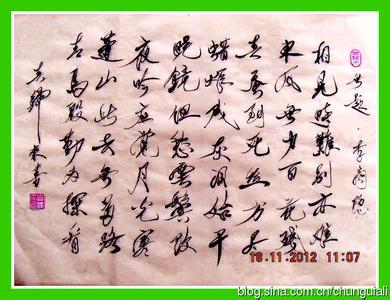 无题·李商隐
相見時難别亦难
東风无力百花残
春蚕到死丝方尽
蜡炬成灰泪始干
晓镜但愁雲鬓改
夜吟应觉月光寒
蓬山此去无多路
青鸟殷勤为探看
18.11.2012 11:07
blog.sina.com.cn/chungufali